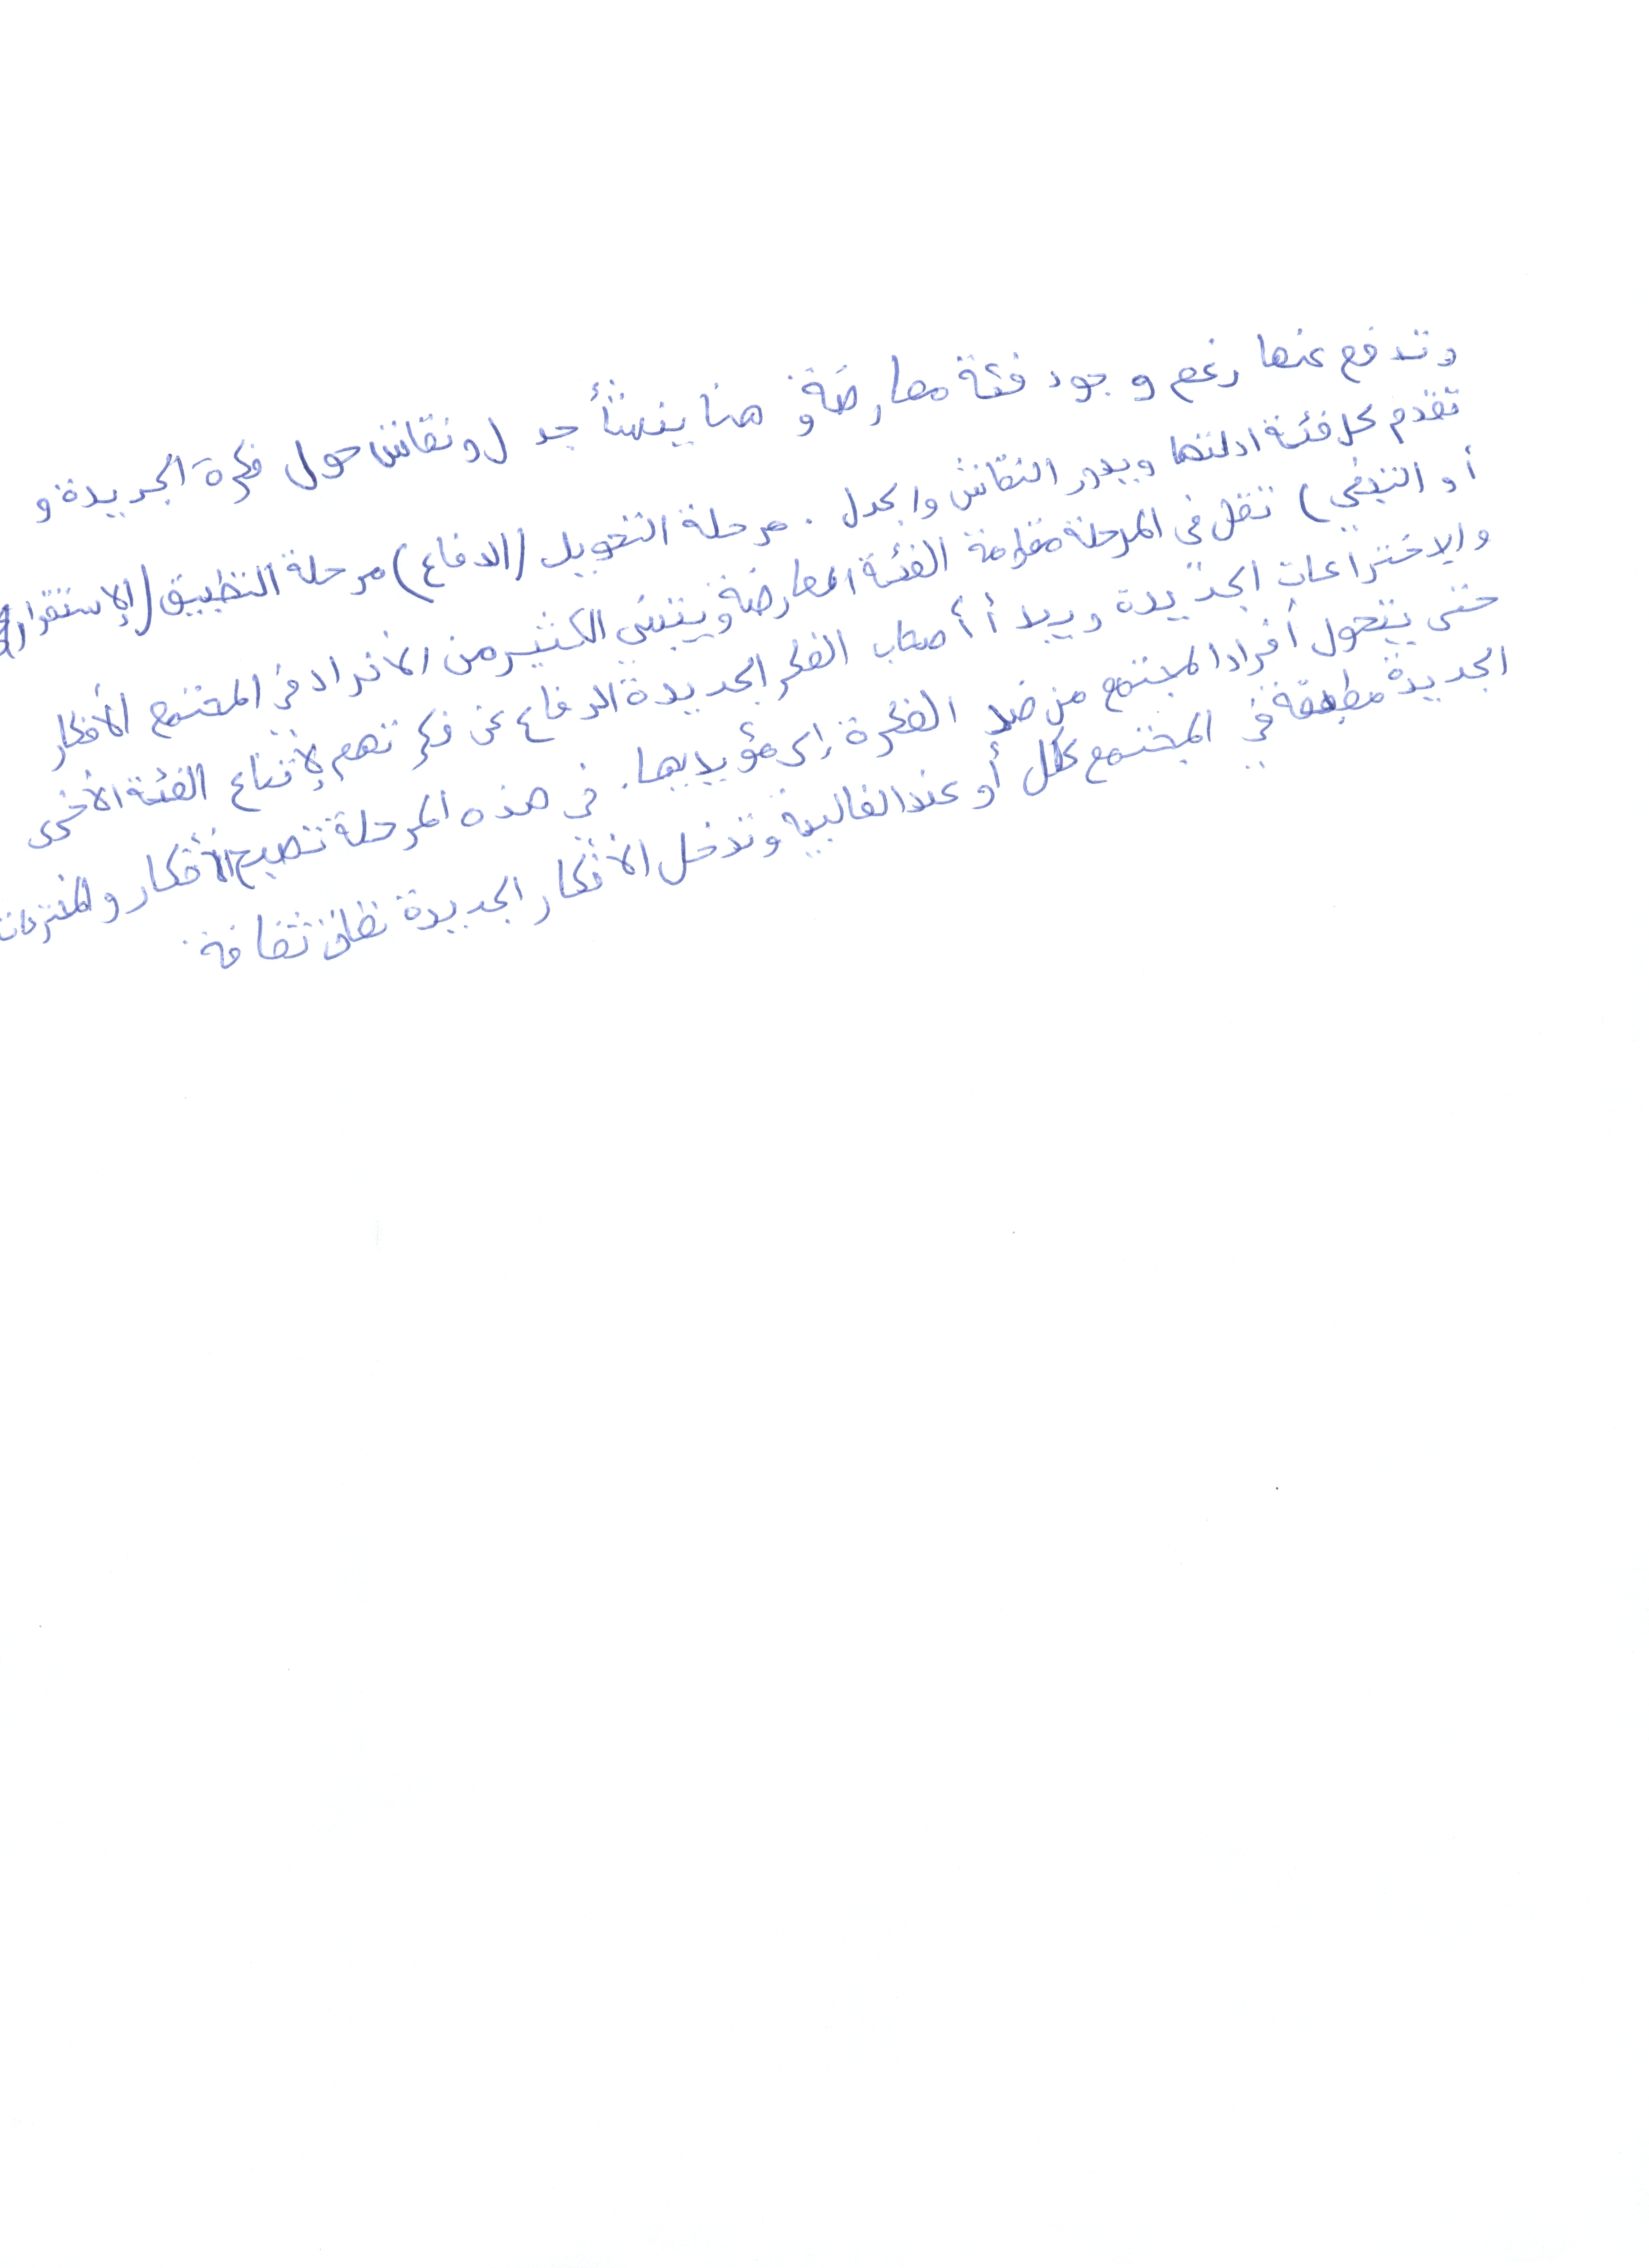 وتدفع عنها رغم وجود فئة معارضة و هنا ينشأ جدل و نقاش حول فكرة الجديدة و
تقدم كل فئة ادلتها ويدور النقاش والجدل . مرحلة التحويل (الدفاع) مرحلة التطبيق (الإستقرار)
أو التبني) تقل في المرحلة مقاومة الفئة المعارضة ويتبنى الكثير من الأفراد في المجتمع الأفكار
والإختراعات الجديدة ويبدأ أصحاب الفكر الجديدة الدفاع عن فكرتهم لإقناع الفئة الأخرى
حتى يتحول أفراد المجتمع من ضد الفكرة إلى مؤيديها. في هذه المرحلة تصبح الأفكار والمخترعات
الجديدة مطبقة في المجتمع ككل أو عند الغالبية وتدخل الأفكار الجديدة نطاق ثقافة.